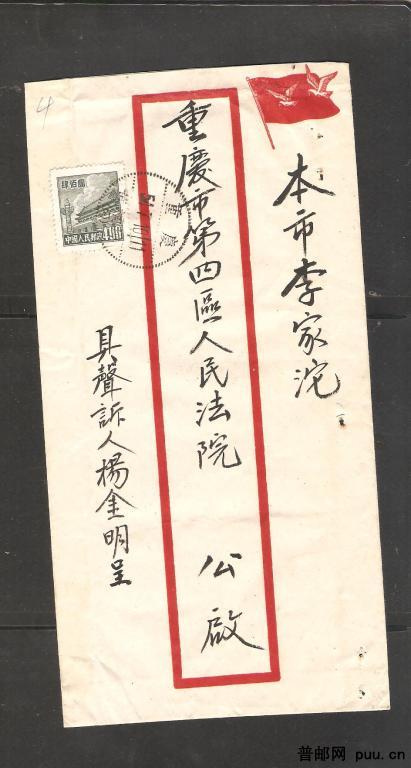 本市李家沱
重慶市第四區人民法院 公啟
具聲訴人楊金明呈
肆佰圓
中國人民郵政
400
重慶
4
普邮网 puu.cn